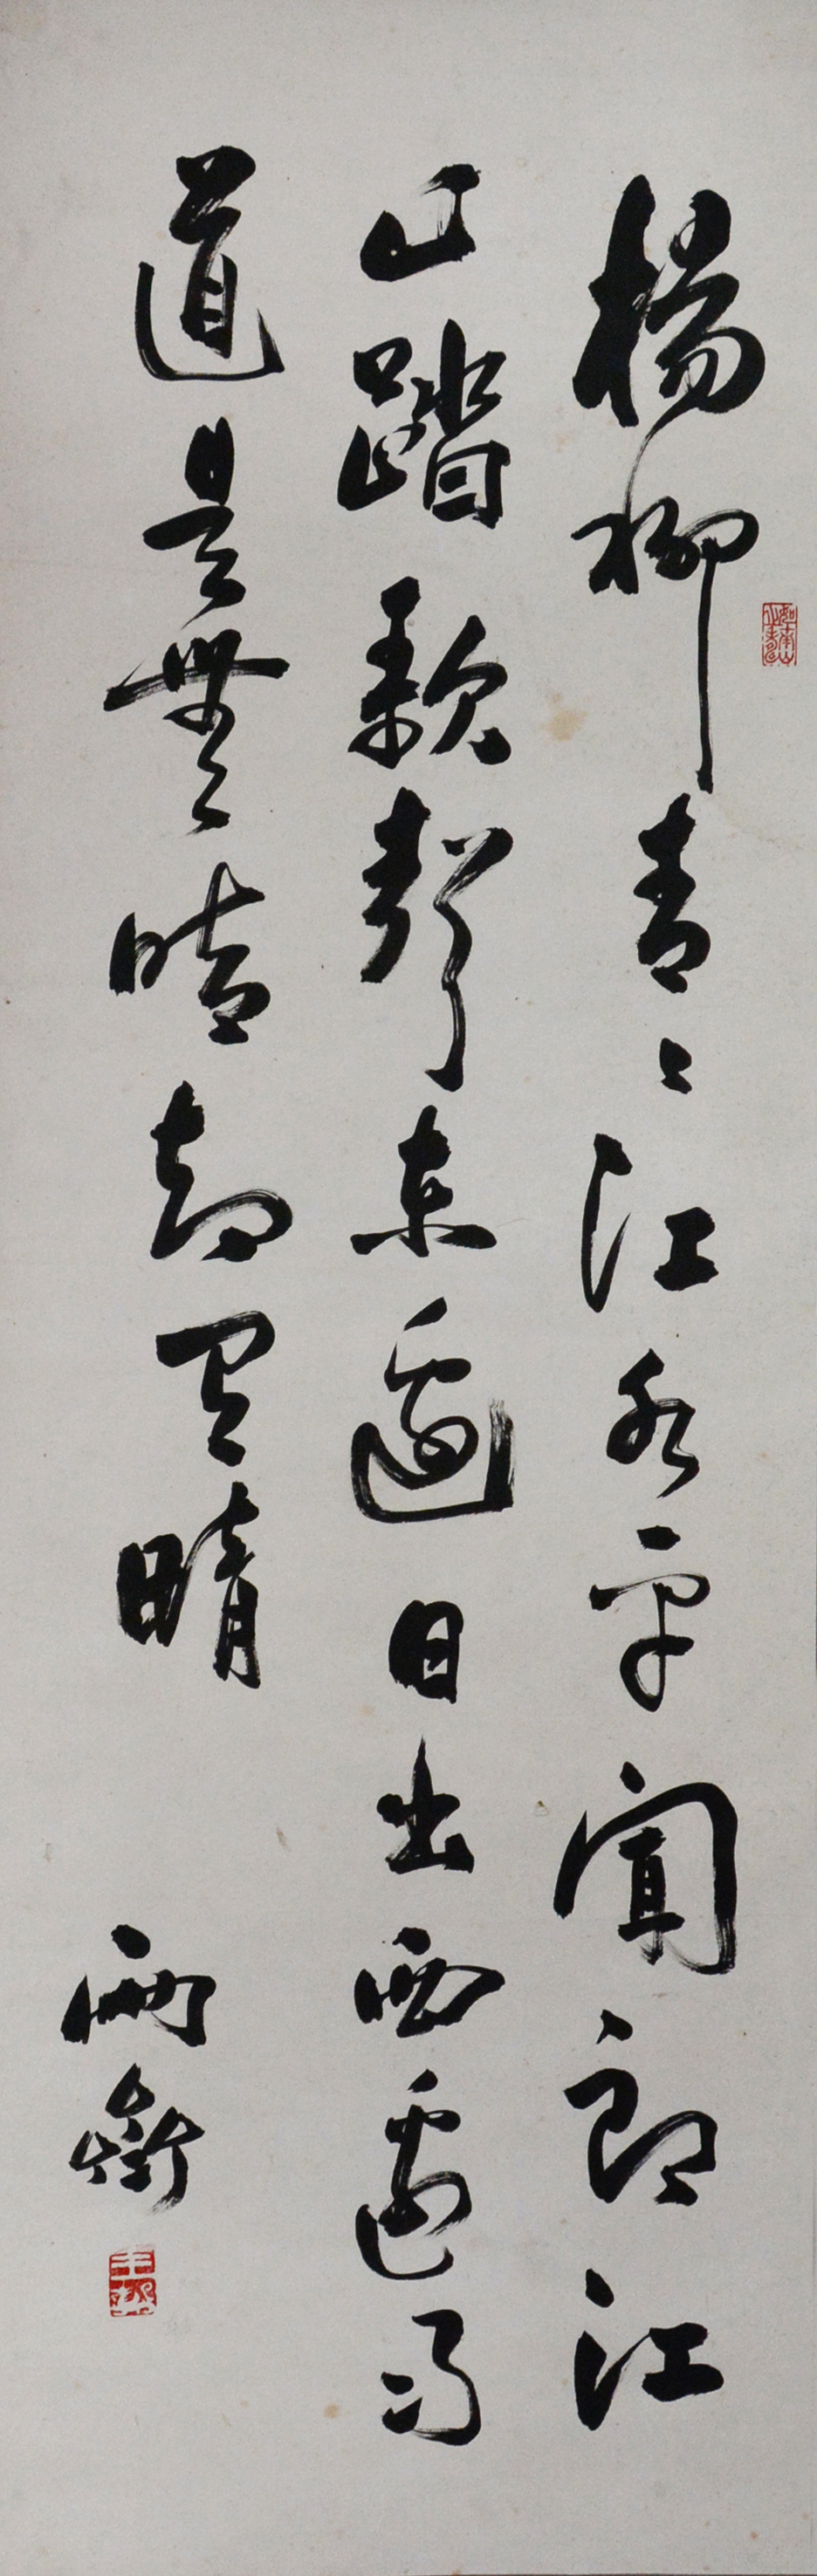 楊柳青々江水平聞郎江
上踏歌聲東邊日出西邊雨
道是無晴却有晴